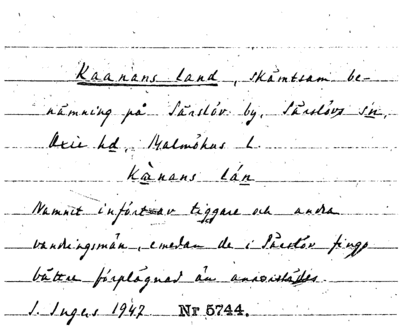 Kaanans land, skämtsam be-
nämning på Särslöv by, Särslövs sn,
Oxie hd, Malmöhus l.
Kànans lán
Namnet infört av tiggare och andra
vandringsmän, emedan de i Särslöv fingo
bättre förplägnad än annorstädes.
I. Ingers 1947 Nr 5744.